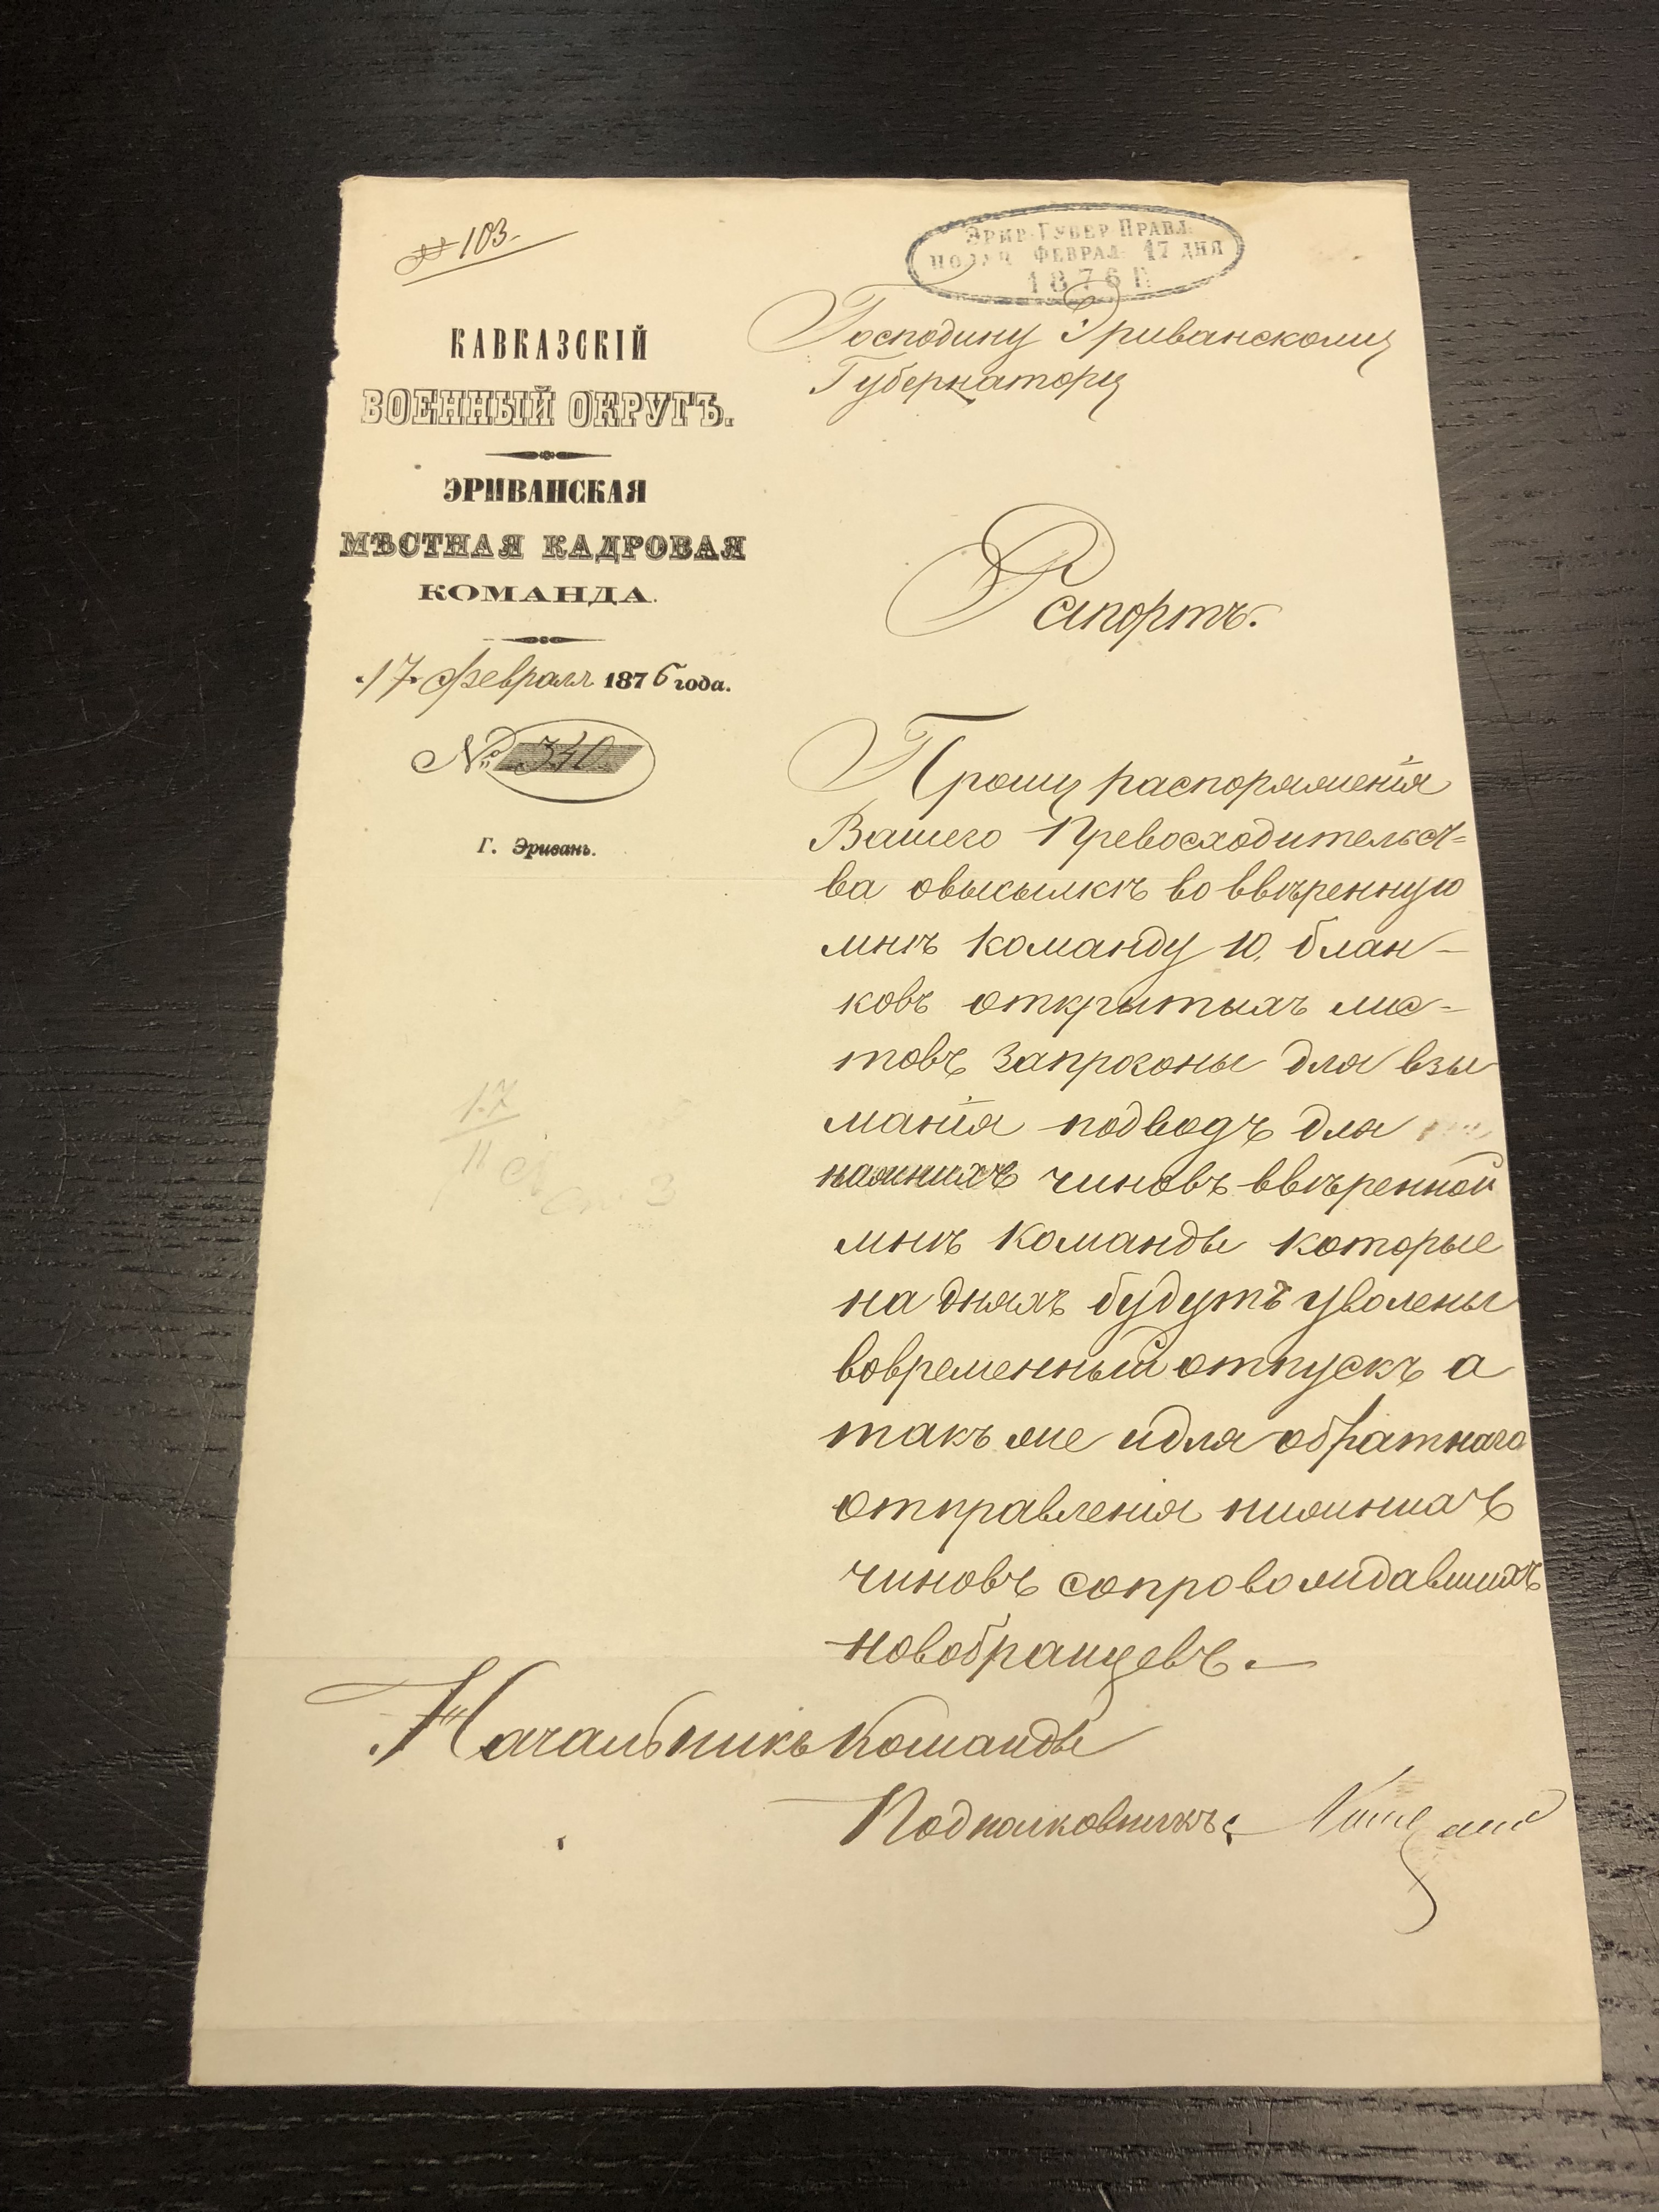 № 103.
ЭРИВ. ГУБЕР. ПРАВЛ.
ПОЛУЧ. ФЕВРАЛ. 17 ДНЯ
1876 Г.
КАВКАЗСКІЙ
ВОЕННЫЙ ОКРУГЪ.
ЭРИВАНСКАЯ
МѢСТНАЯ КАДРОВАЯ
КОМАНДА.
17 февраля 1876 года.
№ 340
Г. Эривань.
Господину Эриванскому
Губернатору
Рапортъ.
Прошу распоряженія
Вашего Превосходительст-
ва овысылкѣ во ввѣренную
мнѣ команду 10, блан-
ковъ открытыхъ лис-
товъ запрогоны для взы
манія подводъ для
нижнихъ чиновъ ввѣренной
мнѣ команды которые
на дняхъ будутъ уволены
вовременный отпускъ а
такъ же идля обратнаго
отправленія нижнихъ
чиновъ сопровождавшихъ
новобранцевъ. —
17
11
Начальникъ Команды
Подполковникъ